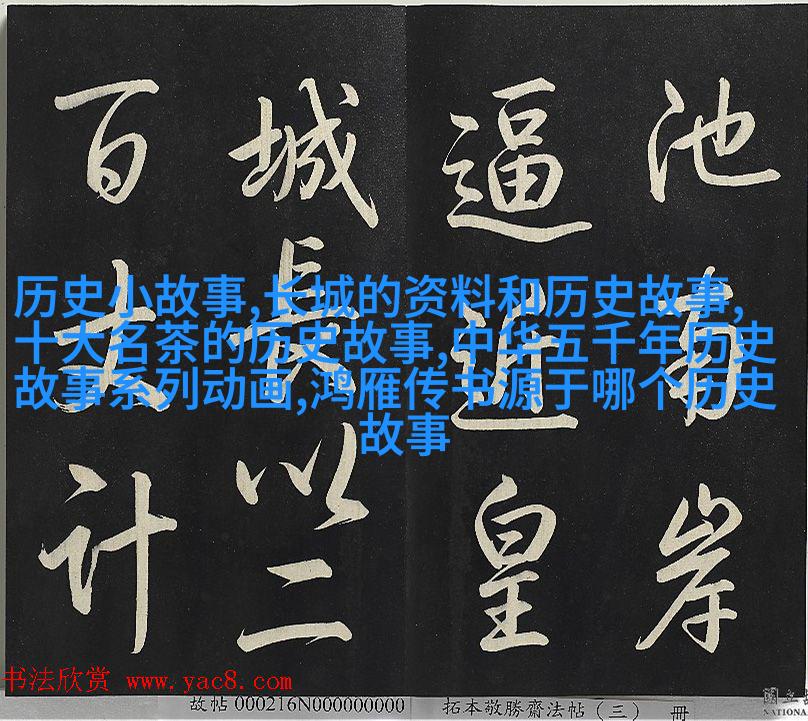 池南岸
逼近皇
城長以二
百丈計
历史小故事,长城的资料和历史故事,
十大名茶的历史故事,中华五千年历史
故事系列动画,鸿雁传书源于哪个历史
故事
书法欣赏 www.yac8.com
故帖 000216N000000000 拓本敬勝齋法帖（三） 冊
國立
NATIONA